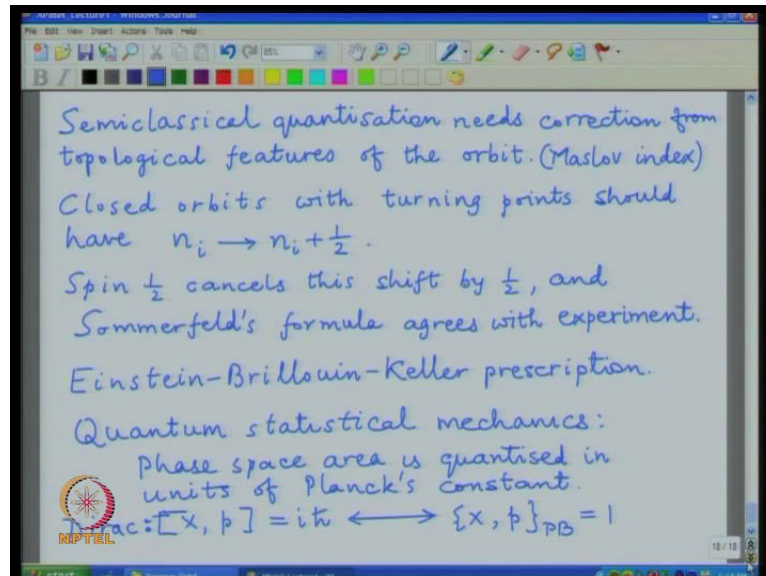 XPatel_Lecture1 - Windows Journal
File Edit View Insert Actions Tools Help
85%
B I
Semiclassical quantisation needs correction from
topological features of the orbit. (Maslov index)
Closed orbits with turning points should
have nᵢ → nᵢ + 1/2.
Spin 1/2 cancels this shift by 1/2, and
Sommerfeld's formula agrees with experiment.
Einstein-Brillouin-Keller prescription.
Quantum statistical mechanics:
Phase space area is quantised in
units of Planck's constant.
Dirac: [x, p] = iħ ⟷ {x, p}PB = 1
NPTEL
18 / 18
start